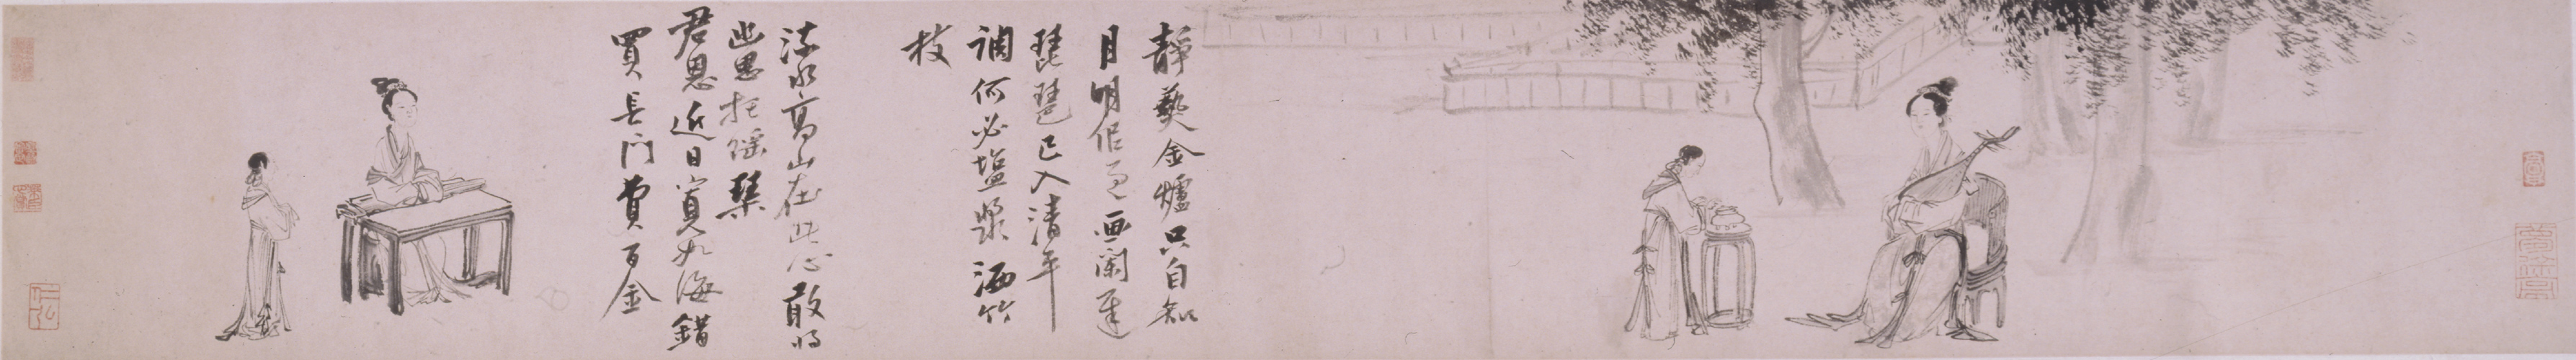 靜爇金爐只自知
月明但過画闌遲
琵琶已入清平
調何必塩漿洒竹
枝
流水高山在此心敢將
幽思托瑶琴
君恩近日寬如海錯
買長门費百金
仁弘